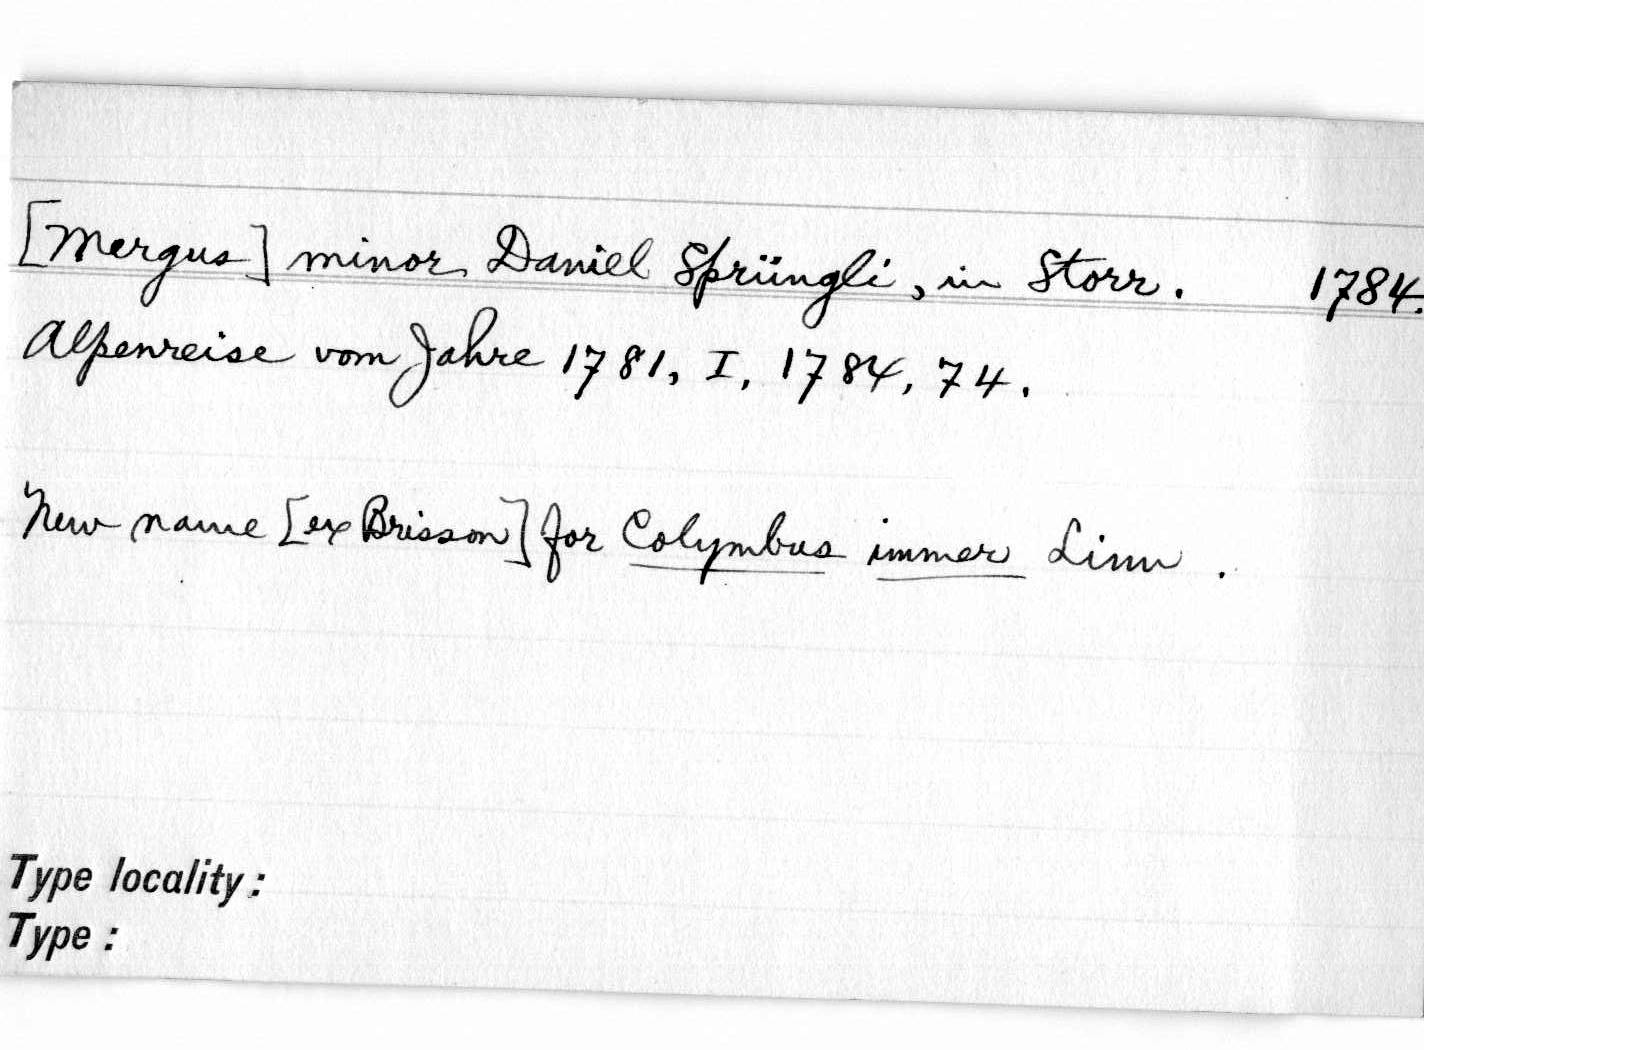 [Mergus] minor Daniel Sprüngli, in Storr. 1784.
Alpenreise vom Jahre 1781, I, 1784, 74.
New name [ex Brisson] for Colymbus immer Linn.
Type locality:
Type: